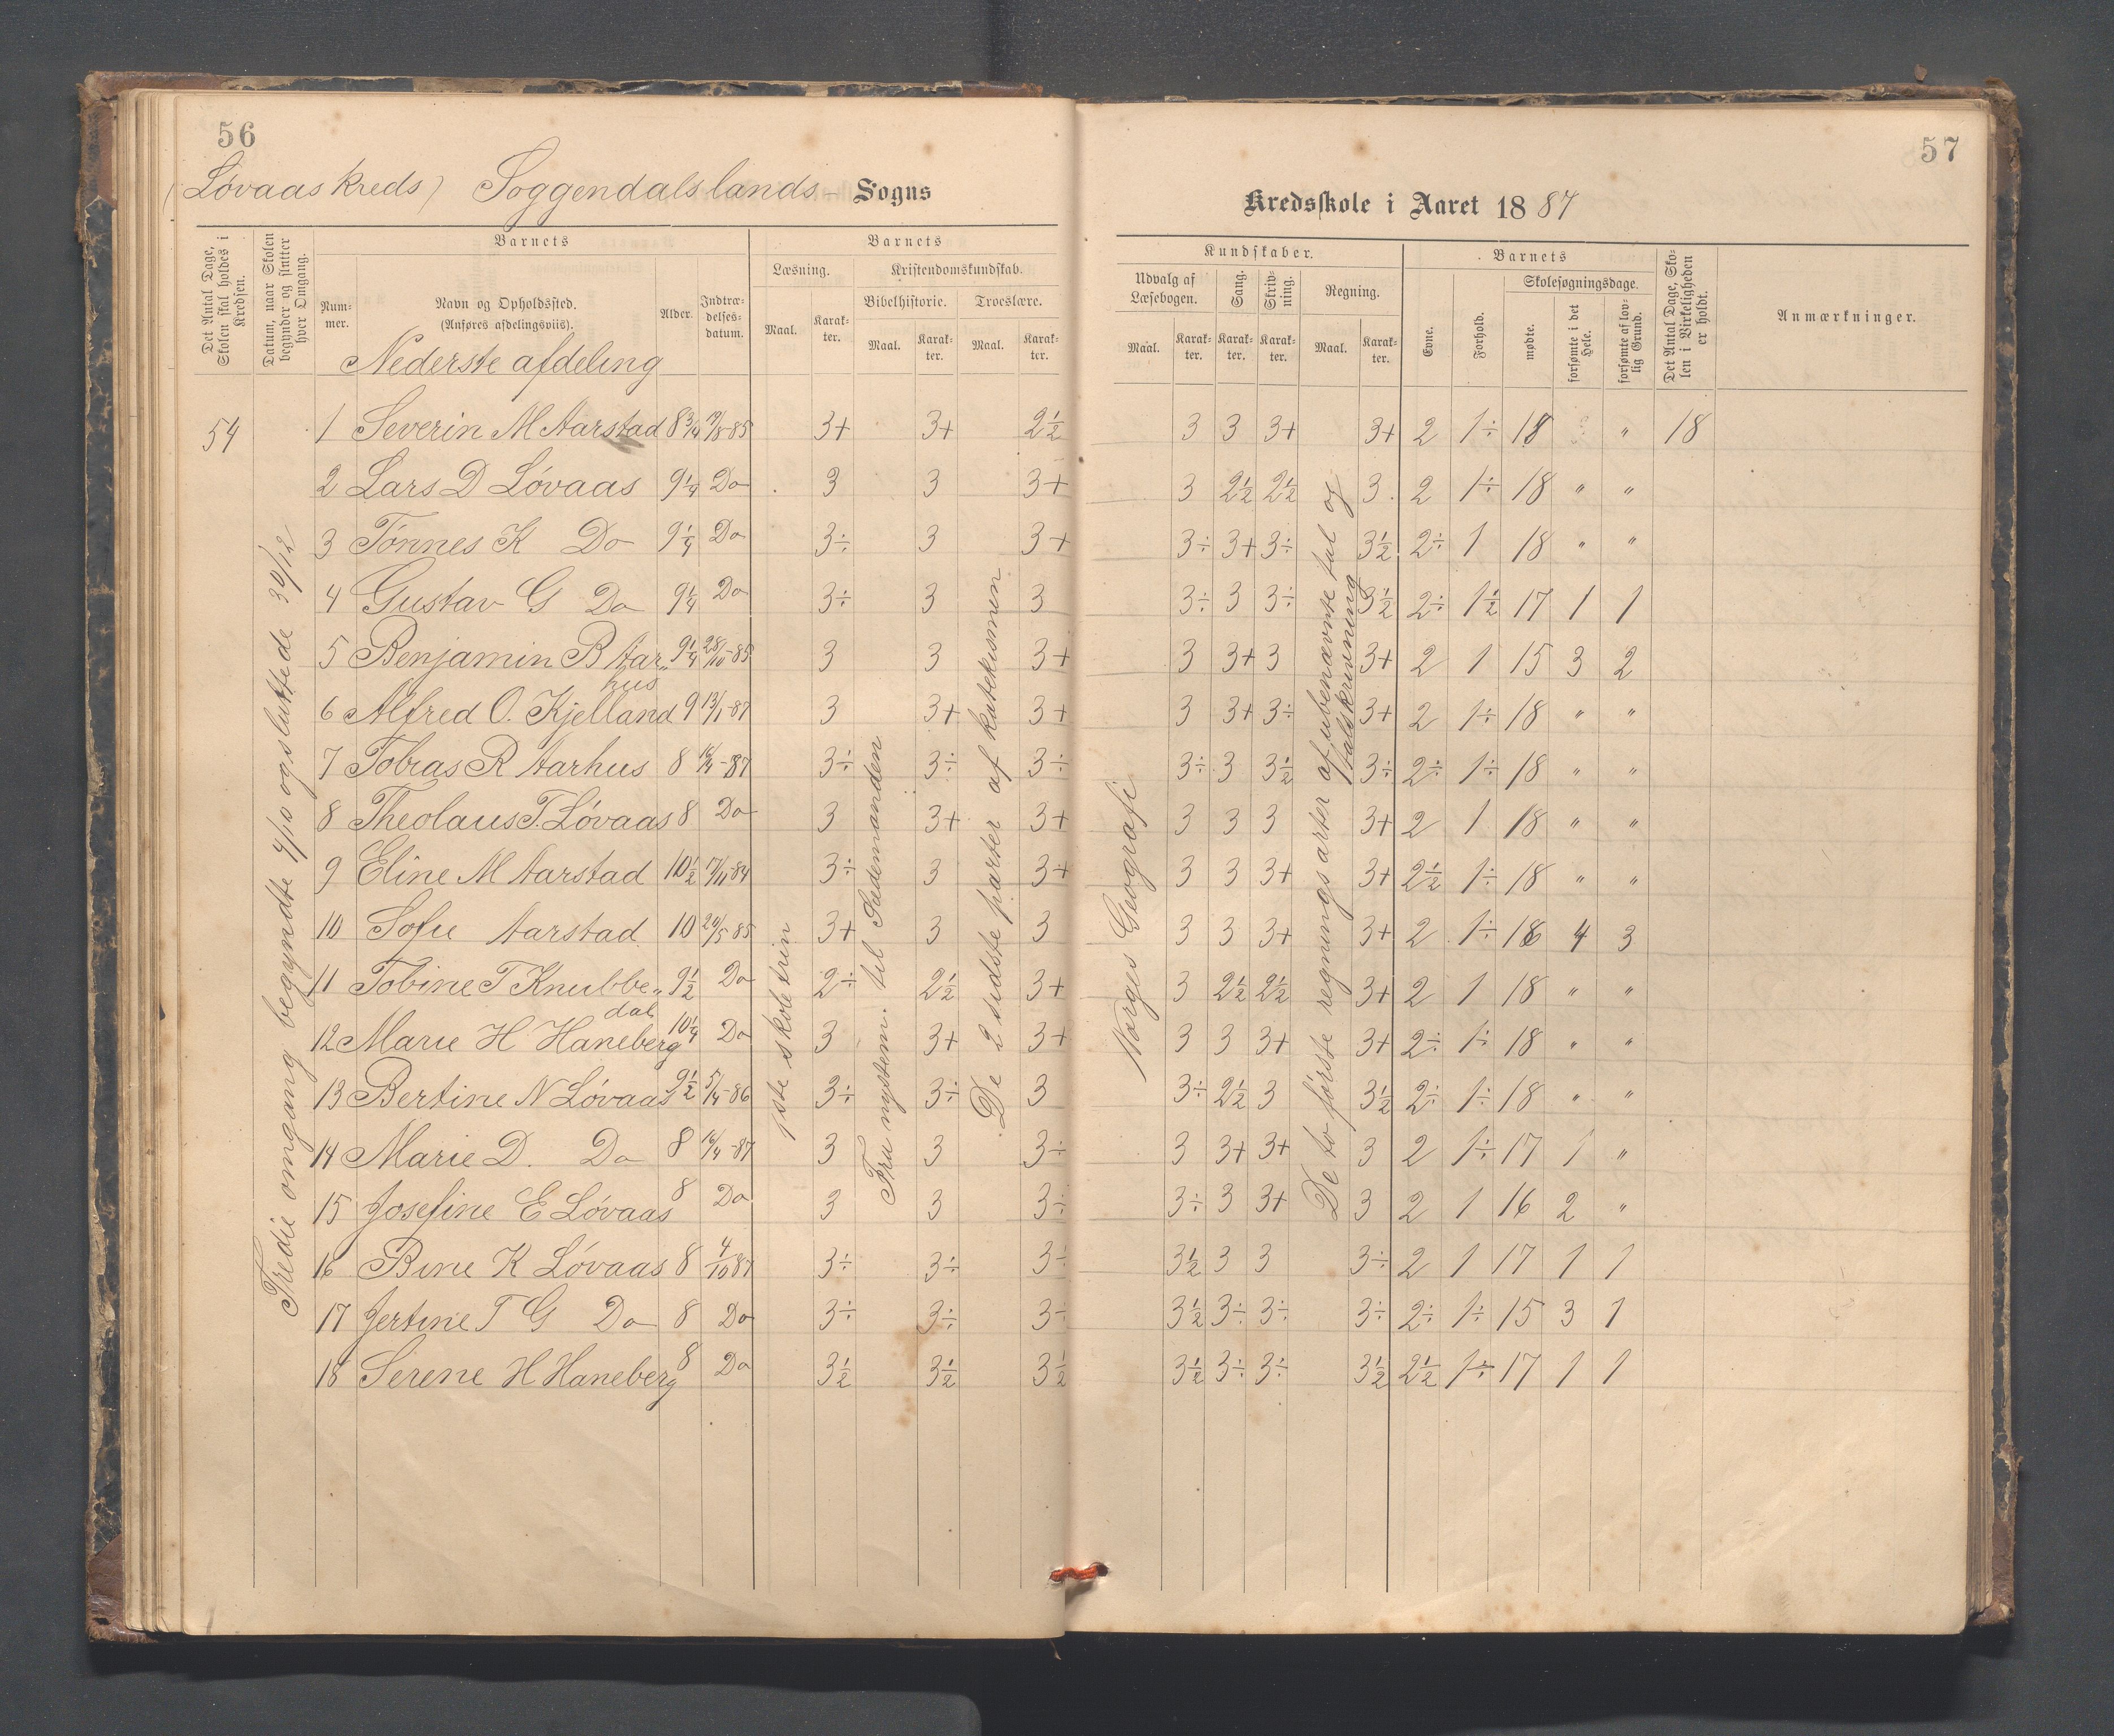 56
57
(Løvaas kreds) Soggendals lands- Sogns
Kredsskole i Aaret 1887
Det Antal Dage, Skolen skal holdes i Kredsen.
Datum, naar Skolen begynder og slutter hver Omgang.
Barnets
Num-mer.
Navn og Opholdssted.
(Anføres afdelingsviis).
Alder.
Indtræ-delses-datum.
Barnets
Læsning.
Maal.
Karak-ter.
Kristendomskundskab.
Bibelhistorie.
Maal.
Karak-ter.
Troeslære.
Maal.
Karak-ter.
Kundskaber.
Udvalg af Læsebogen.
Maal.
Karak-ter.
Sang.
Karak-ter.
Skriv-ning.
Karak-ter.
Regning.
Maal.
Karak-ter.
Barnets
Evne.
Forhold.
Skolesøgningsdage.
mødte.
forsømte i det Hele.
forsømte af lov-lig Grund.
Det Antal Dage, Sko-len i Virkeligheden er holdt.
Anmærkninger.
Nederste afdeling
54 1 Severin M Aarstad 8 3/4 19/8-85 3+ 3+ 2½ 3 3 3+ 3+ 2 1÷ 18 " 18
2 Lars D Løvaas 9¼ Do 3 3 3+ 3 2½ 2½ 3 2 1÷ 18 " "
3 Tønnes K Do 9¼ Do 3÷ 3 3+ 3÷ 3+ 3÷ 3½ 2÷ 1 18 " "
4 Gustav G Do 9¼ Do 3÷ 3 3 3÷ 3 3÷ 3½ 2÷ 1½ 17 1 1
5 Benjamin B Aar„hus 9¼ 28/10-85 3 3 3+ 3 3+ 3 3+ 2 1 15 3 2
6 Alfred O. Kjelland 9 13/1-87 3 3+ 3+ 3 3+ 3÷ 3+ 2 1÷ 18 " "
7 Tobias R Aarhus 8 16/4-87 3÷ 3÷ 3÷ 3÷ 3 3½ 3÷ 2÷ 1÷ 18 " "
8 Theolaus T. Løvaas 8 Do 3 3+ 3+ 3 3 3 3+ 2 1 18 " "
9 Eline M Aarstad 10½ 17/11-84 3÷ 3 3+ 3 3 3+ 3+ 2½ 1÷ 18 " "
10 Sofie Aarstad 10 20/5-85 3+ 3 3 3 3 3+ 3+ 2 1÷ 16 4 3
11 Tobine T Knubbe„dal 9½ Do 2÷ 2½ 3+ 3 2½ 2½ 3+ 2 1 18 " "
12 Marie H Haneberg 10¼ Do 3 3+ 3+ 3 3 3+ 3+ 2÷ 1÷ 18 " "
13 Bertine N Løvaas 9½ 5/4-86 3÷ 3÷ 3 3÷ 2½ 3 3½ 2÷ 1÷ 18 " "
14 Marie D. Do 8 16/4-87 3 3 3÷ 3 3+ 3+ 3 2 1÷ 17 1 "
15 Josefine E Løvaas 8 Do 3 3 3÷ 3÷ 3 3+ 3 2 1 16 2 "
16 Bine K Løvaas 8 4/10 87 3÷ 3÷ 3÷ 3½ 3 3 3÷ 2 1 17 1 1
17 Jertine T G Do 8 Do 3÷ 3÷ 3÷ 3½ 3÷ 3÷ 3÷ 2÷ 1÷ 15 3 1
18 Serene H Haneberg 8 Do 3½ 3½ 3½ 3½ 3÷ 3÷ 3½ 2½ 1÷ 17 1 1
Tredie omgang begyndte 4/10 og sluttede 30/12
1ste skoletrin
Fra nystem. til Sædemanden
De 2 sidste parter af katekismen
Norges Geografi
De to første regningsarter af ubenævnte tal og
talskrivning